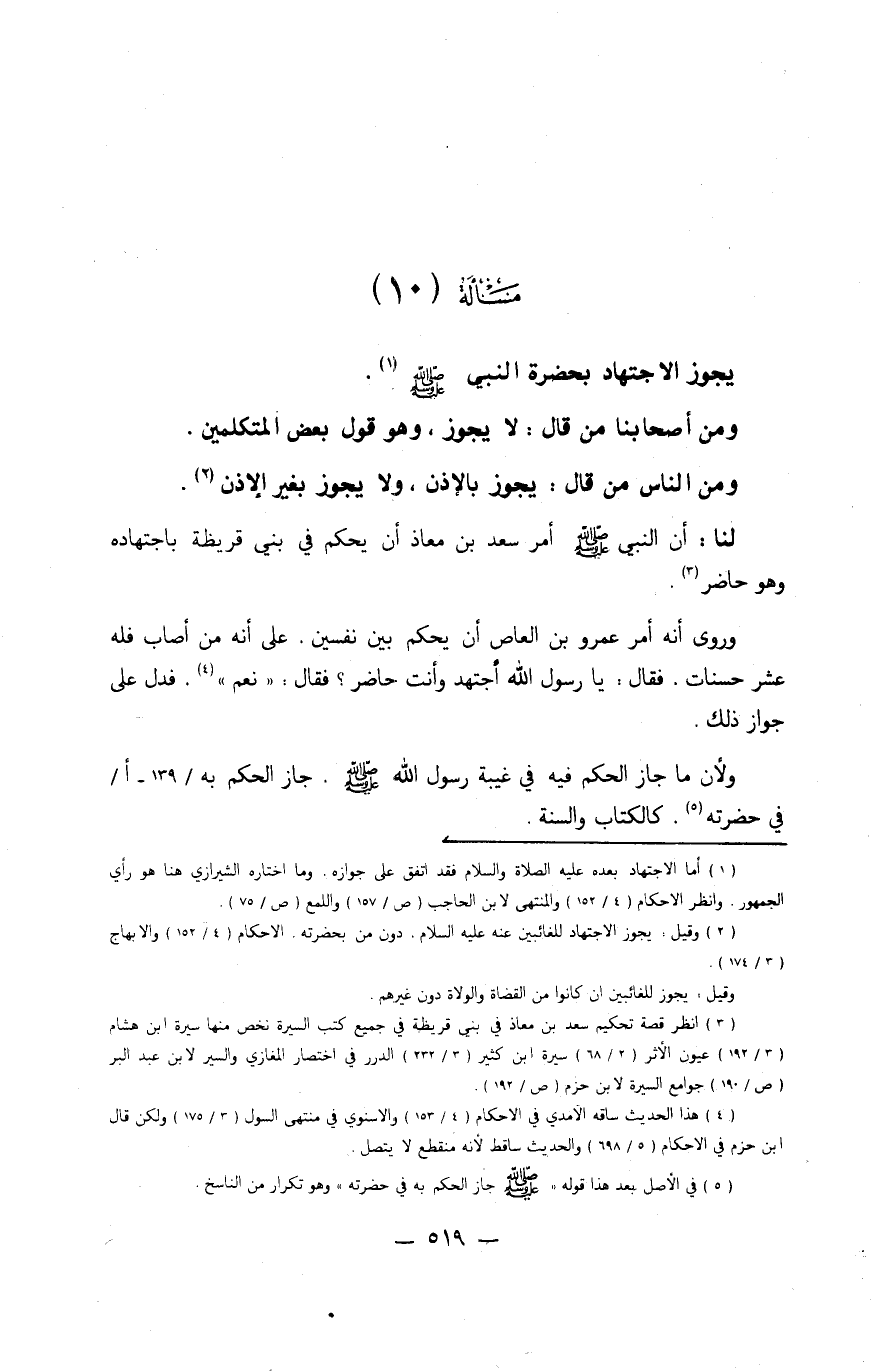 مَسْأَلَة (١٠)
يجوز الاجتهاد بحضرة النبي ﷺ (١) .
ومن أصحابنا من قال : لا يجوز ، وهو قول بعض المتكلمين .
ومن الناس من قال : يجوز بالإذن ، ولا يجوز بغير الإذن (٢) .
لنا : أن النبي ﷺ أمر سعد بن معاذ أن يحكم في بني قريظة باجتهاده
وهو حاضر (٣) .
وروى أنه أمر عمرو بن العاص أن يحكم بين نفسين . على أنه من أصاب فله
عشر حسنات . فقال : يا رسول الله أجتهد وأنت حاضر ؟ فقال : « نعم » (٤) . فدل على
جواز ذلك .
ولأن ما جاز الحكم فيه في غيبة رسول الله ﷺ . جاز الحكم به / ١٣٩ ـ أ /
في حضرته (٥) . كالكتاب والسنة .
( ١ ) أما الاجتهاد بعده عليه الصلاة والسلام فقد اتفق على جوازه . وما اختاره الشيرازي هنا هو رأي
الجمهور . وانظر الاحكام ( ٤ / ١٥٢ ) والمنتهى لابن الحاجب ( ص / ١٥٧ ) واللمع ( ص / ٧٥ ) .
( ٢ ) وقيل : يجوز الاجتهاد للغائبين عنه عليه السلام . دون من بحضرته . الاحكام ( ٤ / ١٥٢ ) والابهاج
( ٣ / ١٧٤ ) .
وقيل : يجوز للغائبين ان كانوا من القضاة والولاة دون غيرهم .
( ٣ ) انظر قصة تحكيم سعد بن معاذ في بني قريظة في جميع كتب السيرة نخص منها سيرة ابن هشام
( ٣ / ١٩٢ ) عيون الأثر ( ٢ / ٦٨ ) سيرة ابن كثير ( ٣ / ٢٣٢ ) الدرر في اختصار المغازي والسير لابن عبد البر
( ص / ١٩٠ ) جوامع السيرة لابن حزم ( ص / ١٩٢ ) .
( ٤ ) هذا الحديث ساقه الآمدي في الاحكام ( ٤ / ١٥٣ ) والاسنوي في منتهى السول ( ٣ / ١٧٥ ) ولكن قال
ابن حزم في الاحكام ( ٥ / ٦٩٨ ) والحديث ساقط لأنه منقطع لا يتصل .
( ٥ ) في الأصل بعد هذا قوله « ﷺ جاز الحكم به في حضرته » وهو تكرار من الناسخ .
— ٥١٩ —